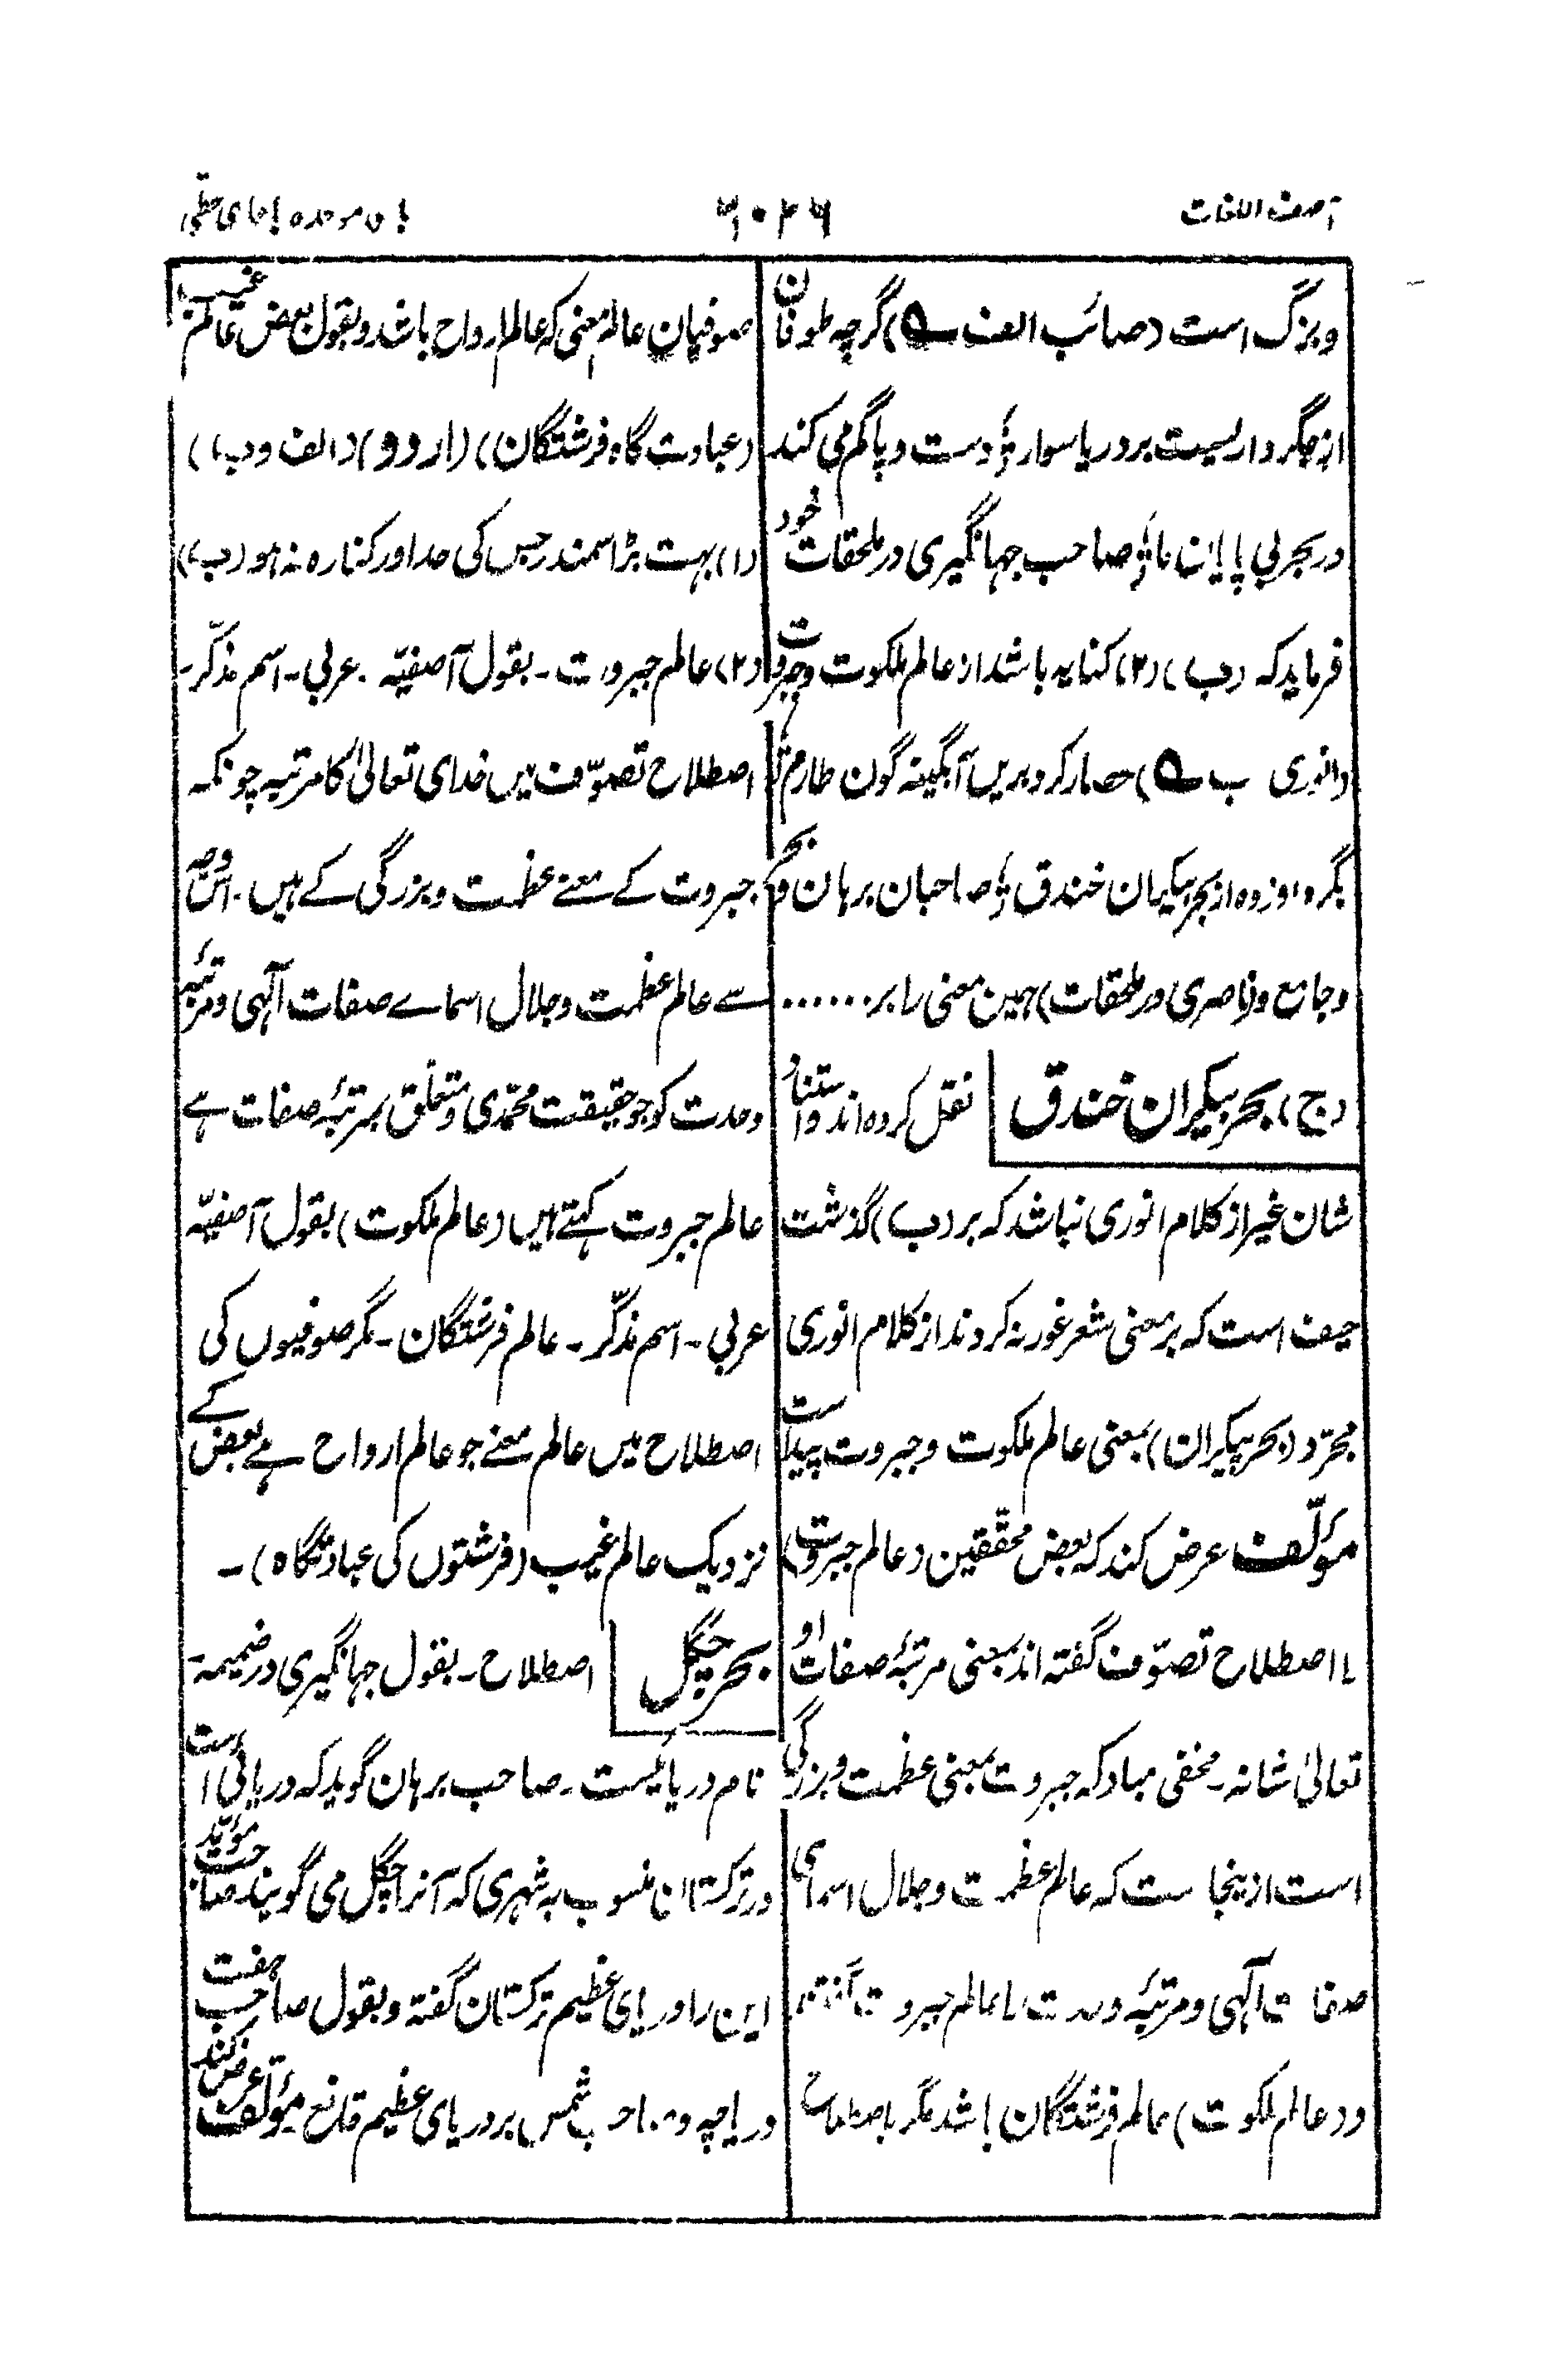 آصف اللغات
۶۰۲۶
بای موحده باحای حطی
و بزرگ است (صائب الف ؎) گرچہ طوفان
از جگرداریست بر دریا سوار ؛ دست و پا گم می کند
در بحر بی پایان ما ؛ صاحب جہانگیری در ملحقات خود
فرماید کہ (ب) (۲) کنایہ باشد از عالم ملکوت و جبروت
(انوری ب ؎) حصار کرد برین آبگینہ گون طارم ؛
بگرد او زدہ از بحر بیکران خندق ؛ صاحبان برہان و بحر
و جامع و ناصری (در ملحقات) ہمین معنی را بر ......
(ج) بحر بیکران خندق
نقل کردہ اند و استناد
شان غیر از کلام انوری نباشد کہ بر (ب) گذشت
حیف است کہ بر معنی شعر غور نہ کردند از کلام انوری
مجرّد (بحر بیکران) بمعنی عالم ملکوت و جبروت پیداست
مؤلّف عرض کند کہ بعض محقّقین (عالم جبروت)
با اصطلاح تصوّف گفتہ اند بمعنی مرتبۂ صفات او
تعالیٰ شانہ ۔ مخفی مباد کہ جبروت بمعنی عظمت و بزرگی
است ازینجاست کہ عالم عظمت و جلال اسمای
صفات آلہی و مرتبۂ وحدت با عالم جبروت گفتند
و (عالم ملکوت) عالم فرشتگان باشد مگر باصطلاح
صوفیان عالم معنی کہ عالم ارواح باشد و بقول بعض عالم غیب
(عبادت گاہ فرشتگان) (اردو) (الف و ب)
(۱) بہت بڑا سمندر جس کی حد اور کنارہ نہ ہو (ب)
(۲) عالم جبروت ۔ بقول آصفیّہ ۔ عربی ۔ اسم مذکّر ۔
اصطلاح تصوّف میں خدای تعالیٰ کا مرتبہ چونکہ
جبروت کے معنے عظمت و بزرگی کے ہیں ۔ اس وجہ
سے عالم عظمت و جلال اسماے صفات آلہی و مرتبۂ
وحدت کو جو حقیقت محمّدی و متعلّق بمرتبۂ صفات ہے
عالم جبروت کہتے ہیں (عالم ملکوت) بقول آصفیّہ
عربی ۔ اسم مذکّر ۔ عالم فرشتگان ۔ مگر صوفیوں کی
اصطلاح میں عالم معنے جو عالم ارواح ہے بعض کے
نزدیک عالم غیب (فرشتوں کی عبادتگاہ) ۔
بحر چگل
اصطلاح ۔ بقول جہانگیری در ضمیمہ
نام دریائیست ۔ صاحب برہان گوید کہ دریائی است
در ترکستان منسوب بہ شہری کہ آنرا چگل می گویند صاحب مؤیّد
این را دریای عظیم ترکستان گفتہ و بقول صاحب ہفت
دریاچہ و صاحب شمس بر دریای عظیم قانع مؤلّف عرض کند